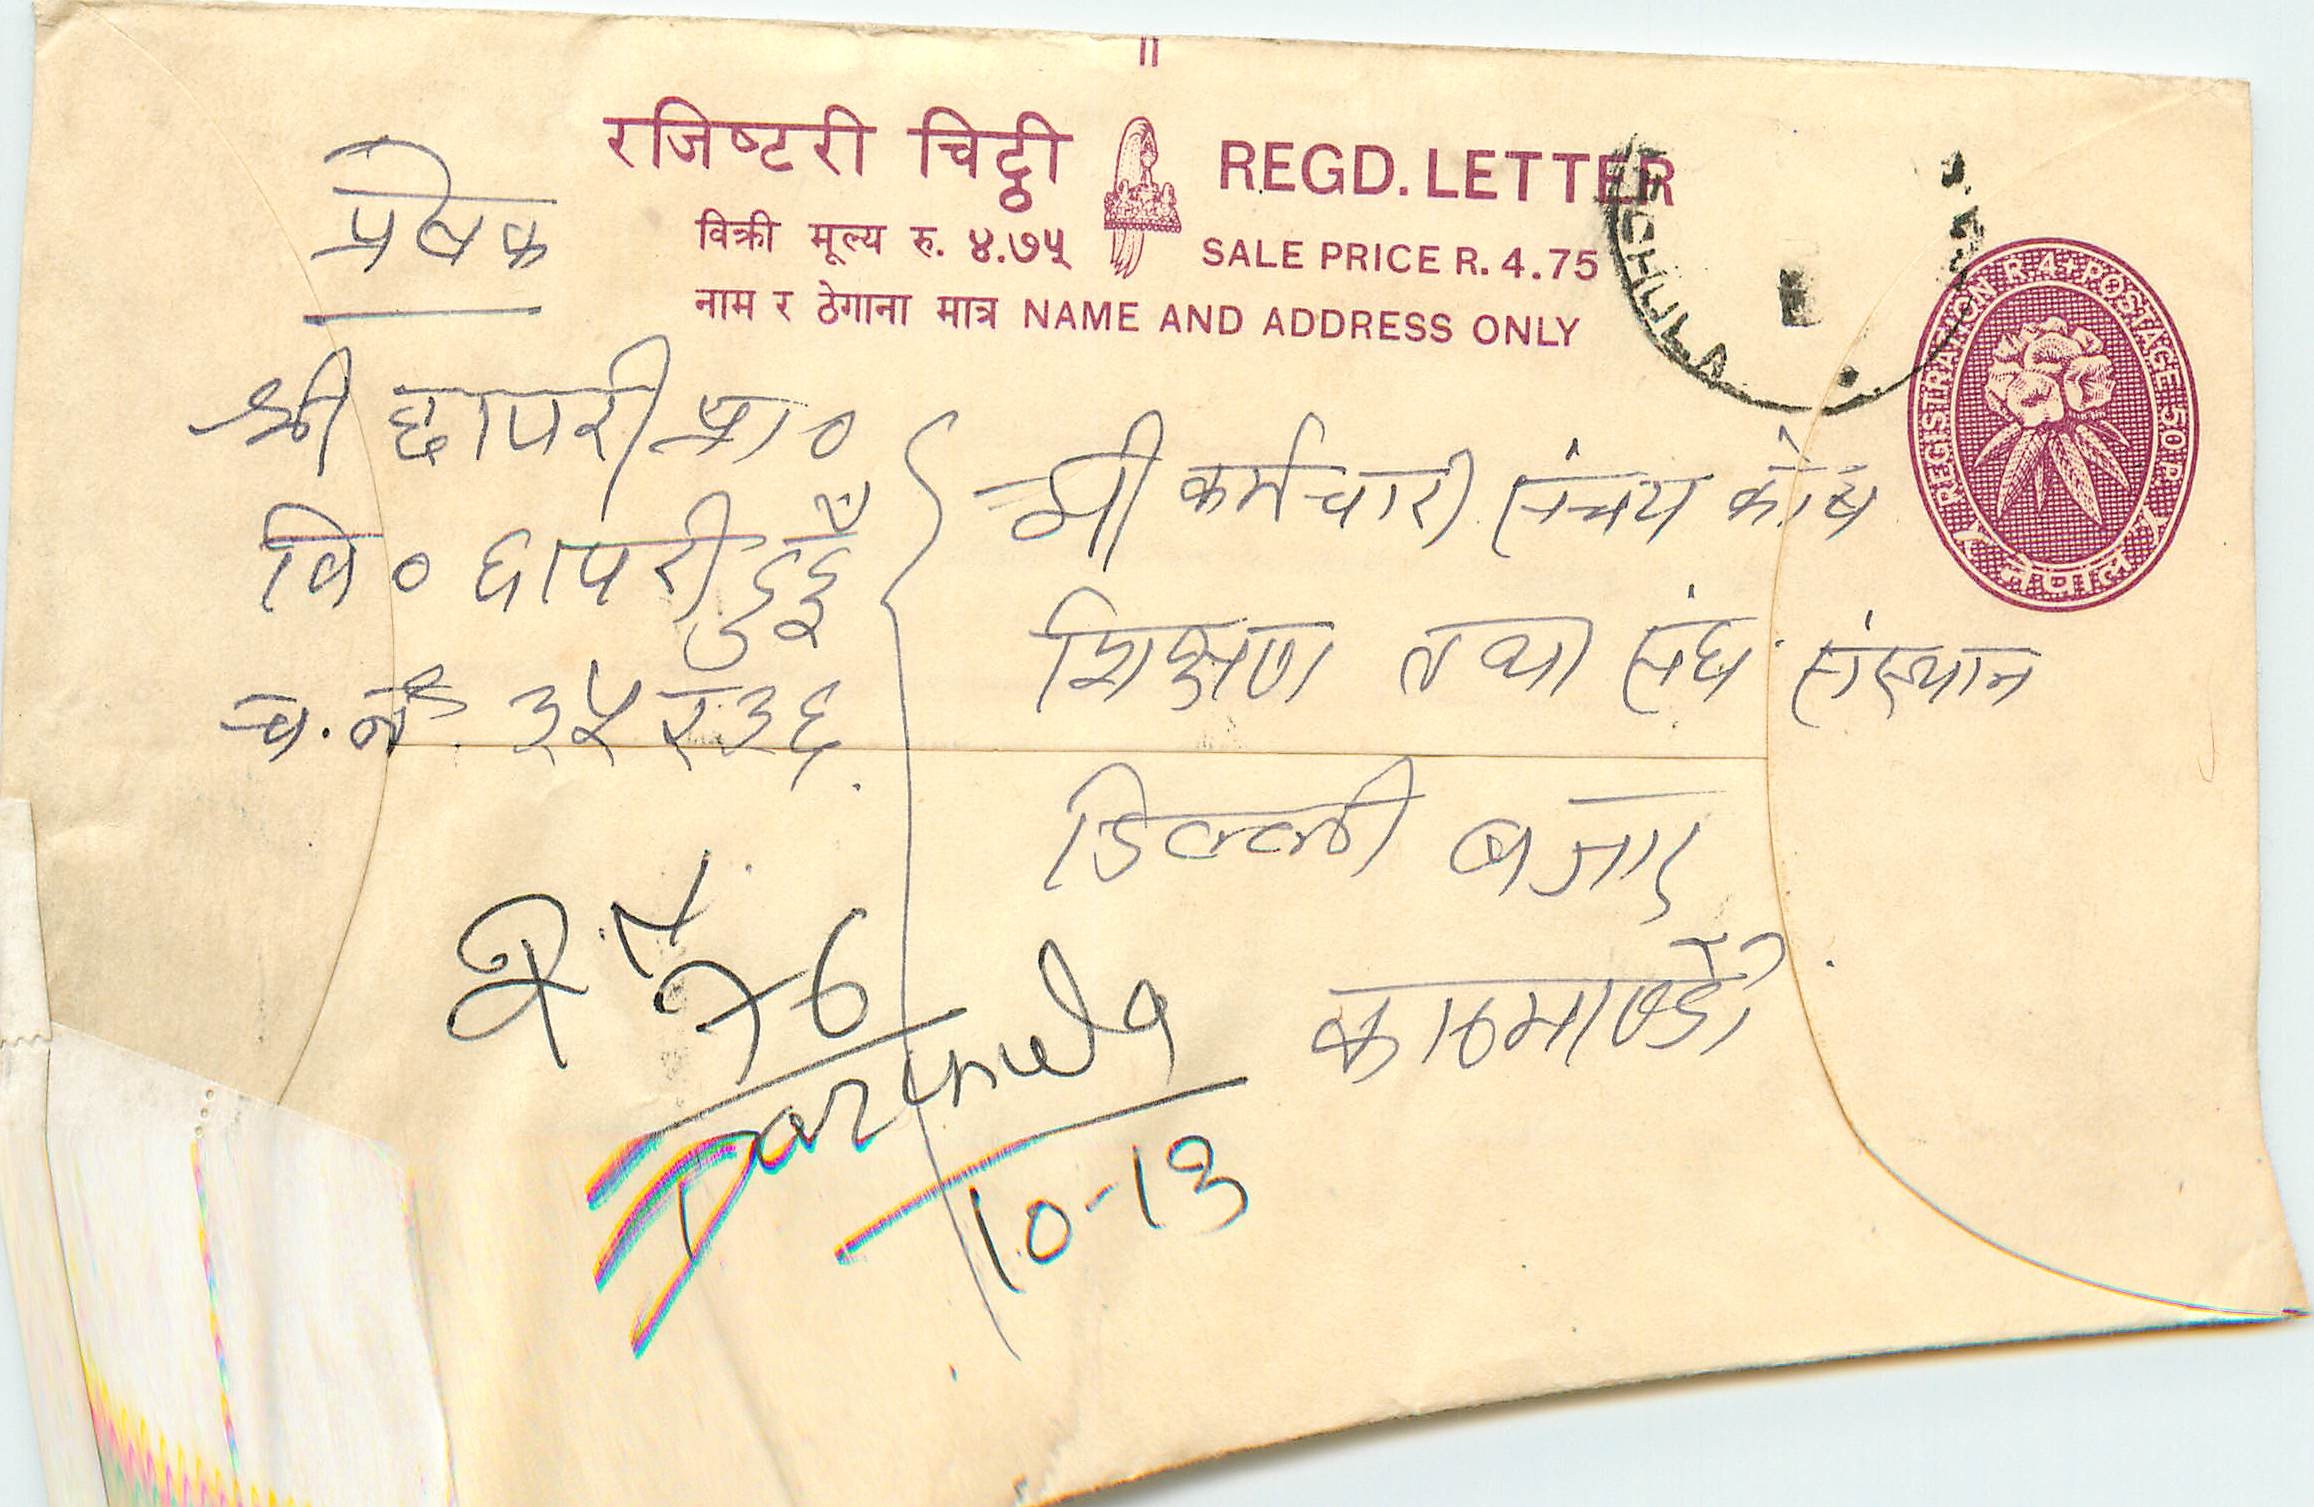 रजिष्टरी चिट्ठी REGD. LETTER
विक्री मूल्य रु. ४.७५ SALE PRICE R. 4.75
नाम र ठेगाना मात्र NAME AND ADDRESS ONLY
REGISTRATION R. 4+POSTAGE 50 P.
नेपाल
CHULA
प्रेषक
श्री छापरी प्रा०
वि० छापरी दुहुँ
च. नं ३५२३६
श्री कर्मचारी संचय कोष
शिक्षण तथा संघ संस्थान
डिल्ली बजार
काठमाण्डौ
R.N 76
Darchula
10-13